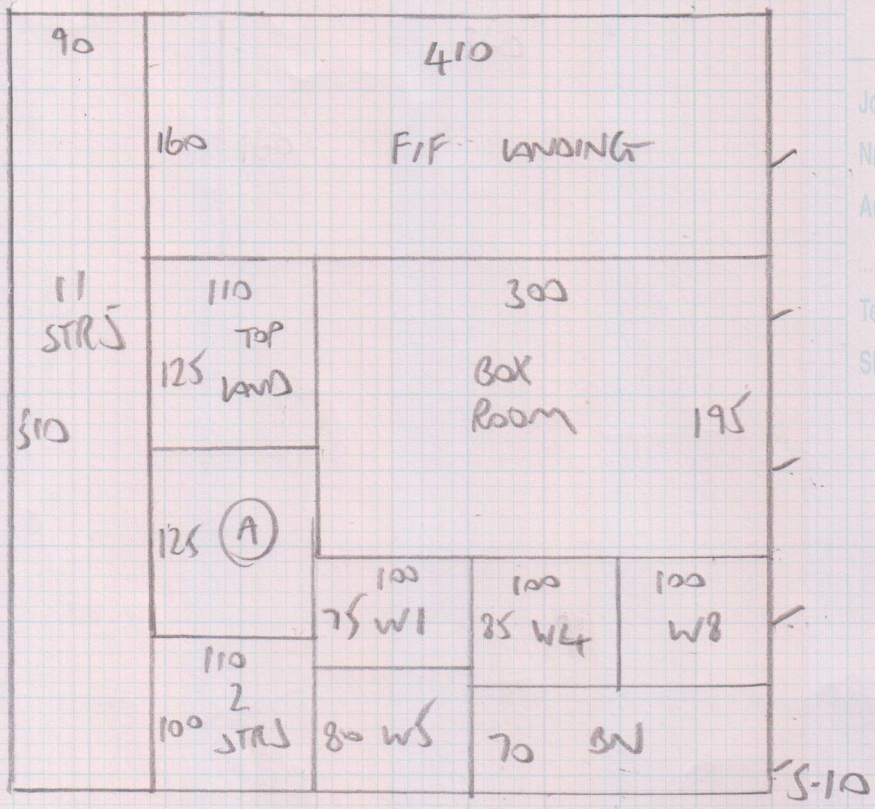 90
410
160
F/F LANDING
11
STRS
510
110
TOP
125 LAND
300
BOX
ROOM 195
125 A
100
75 W1
100
85 W4
100
W8
110
2
100 STRS
80 W5
70 BN
5-10